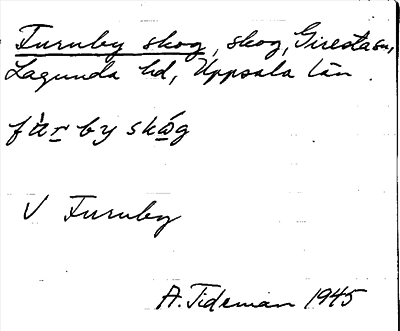 Furuby skog, skog, Giresta sn,
Lagunda hd, Uppsala län.
fùr by skóg
V Furuby
A. Tideman 1945